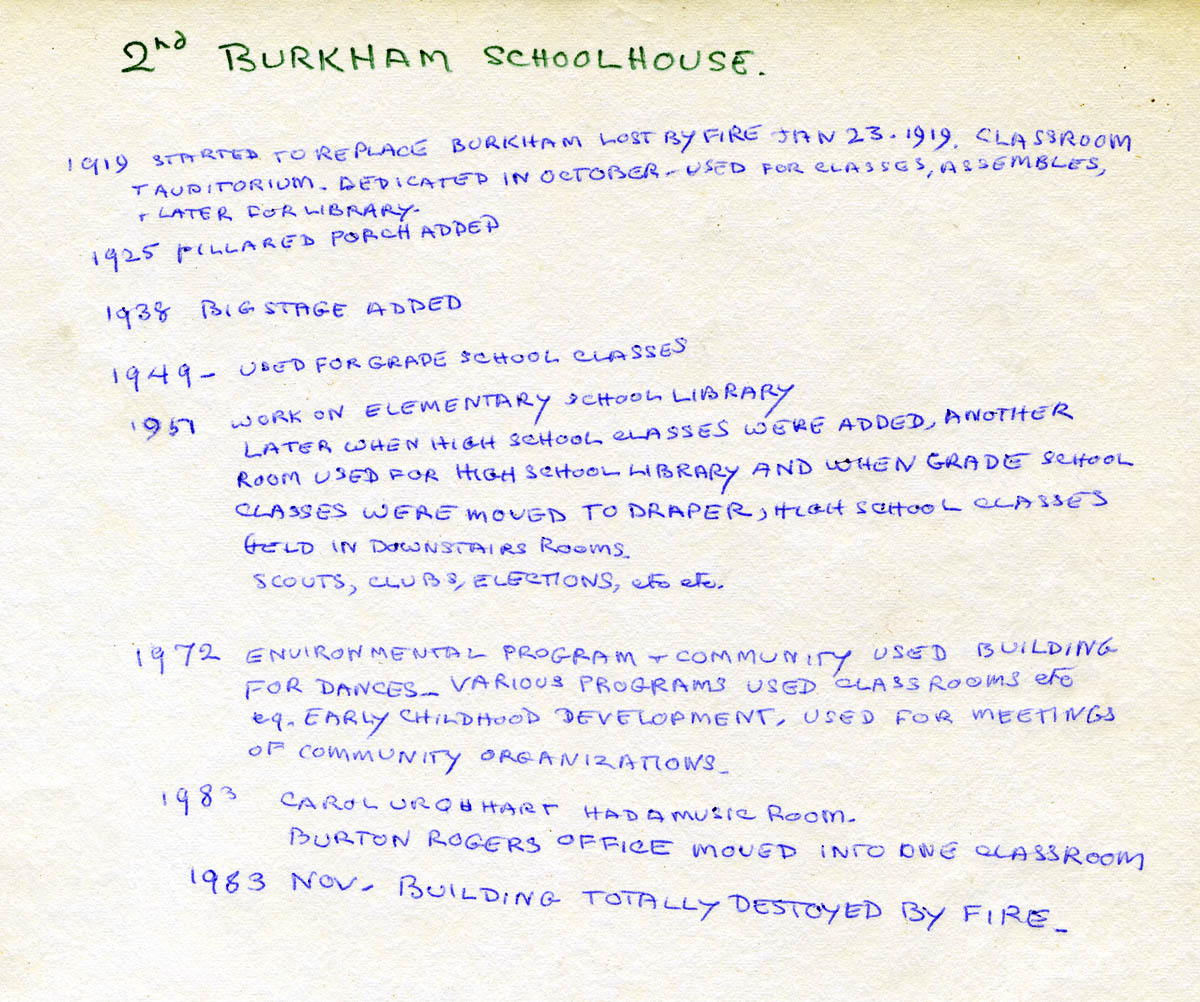 2nd BURKHAM SCHOOLHOUSE.
1919 STARTED TO REPLACE BURKHAM LOST BY FIRE JAN 23. 1919. CLASSROOM
+ AUDITORIUM. DEDICATED IN OCTOBER - USED FOR CLASSES, ASSEMBLES,
+ LATER FOR LIBRARY.
1925 PILLARED PORCH ADDED
1938 BIG STAGE ADDED
1949 - USED FOR GRADE SCHOOL CLASSES
1951 WORK ON ELEMENTARY SCHOOL LIBRARY
LATER WHEN HIGH SCHOOL CLASSES WERE ADDED, ANOTHER
ROOM USED FOR HIGH SCHOOL LIBRARY AND WHEN GRADE SCHOOL
CLASSES WERE MOVED TO DRAPER, HIGH SCHOOL CLASSES
HELD IN DOWNSTAIRS ROOMS.
SCOUTS, CLUBS, ELECTIONS, etc etc.
1972 ENVIRONMENTAL PROGRAM + COMMUNITY USED BUILDING
FOR DANCES - VARIOUS PROGRAMS USED CLASSROOMS etc
eg. EARLY CHILDHOOD DEVELOPMENT. USED FOR MEETINGS
OF COMMUNITY ORGANIZATIONS -
1983 CAROL URQUHART HAD A MUSIC ROOM.
BURTON ROGERS OFFICE MOVED INTO ONE CLASSROOM
1983 NOV - BUILDING TOTALLY DESTOYED BY FIRE -